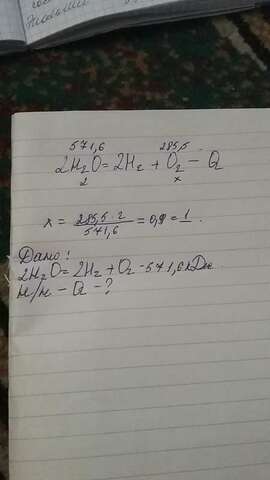 571,6 285,5
2H₂O = 2H₂ + O₂ - Q
2 x
x = 285,5 · 2 / 571,6 = 0,9 = 1.
Дано:
2H₂O = 2H₂ + O₂ - 571,6 кДж
Н/Н - Q - ?